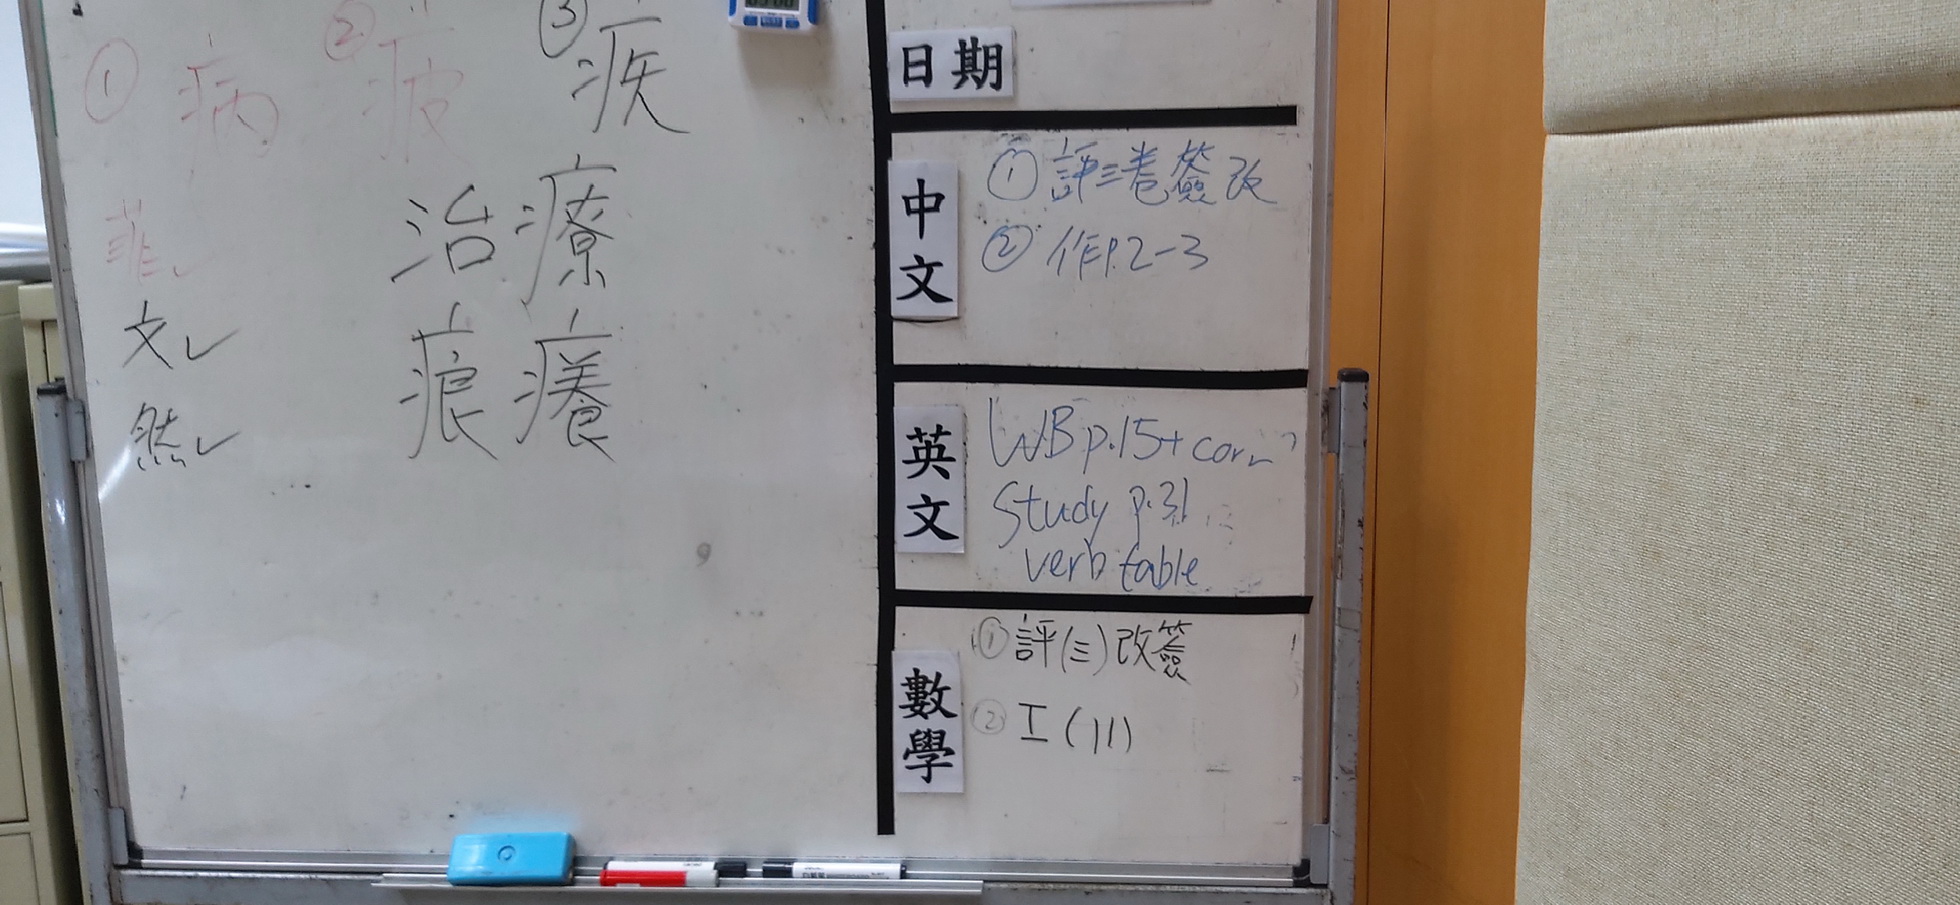 ① 病 ② 疲 ③ 疾
治療
痕癢
菲✓
文✓
然✓
日期
中文
① 評三卷簽改
② 作P.2-3
英文
WB p.15+ corr
Study p.31
verb table
數學
① 評(三)改簽
② 工(11)